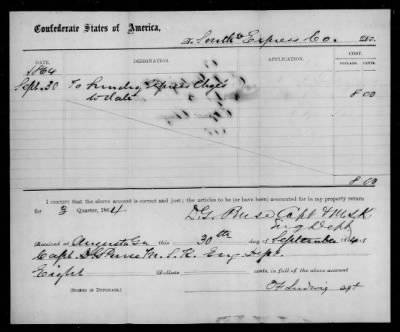 Confederate States of America,
To South'n Express Co. Dr.
DATE. DESIGNATION. APPLICATION. COST.
DOLLARS. CENTS.
1864
Sept. 30 To Sundry Express Chgs 8 00
to date
8 00
I certify that the above account is correct and just; the articles to be (or have been) accounted for in my property return
for 3 Quarter, 1864 D. G. Capt & M.S.K
Eng Dept
Received at Augusta Ga this 30th day of September 1864 of
Capt. D G M. S. K. Eng Dept.
Eight Dollars cents, in full of the above account
(SIGNED IN DUPLICATE.) Ludwig agt